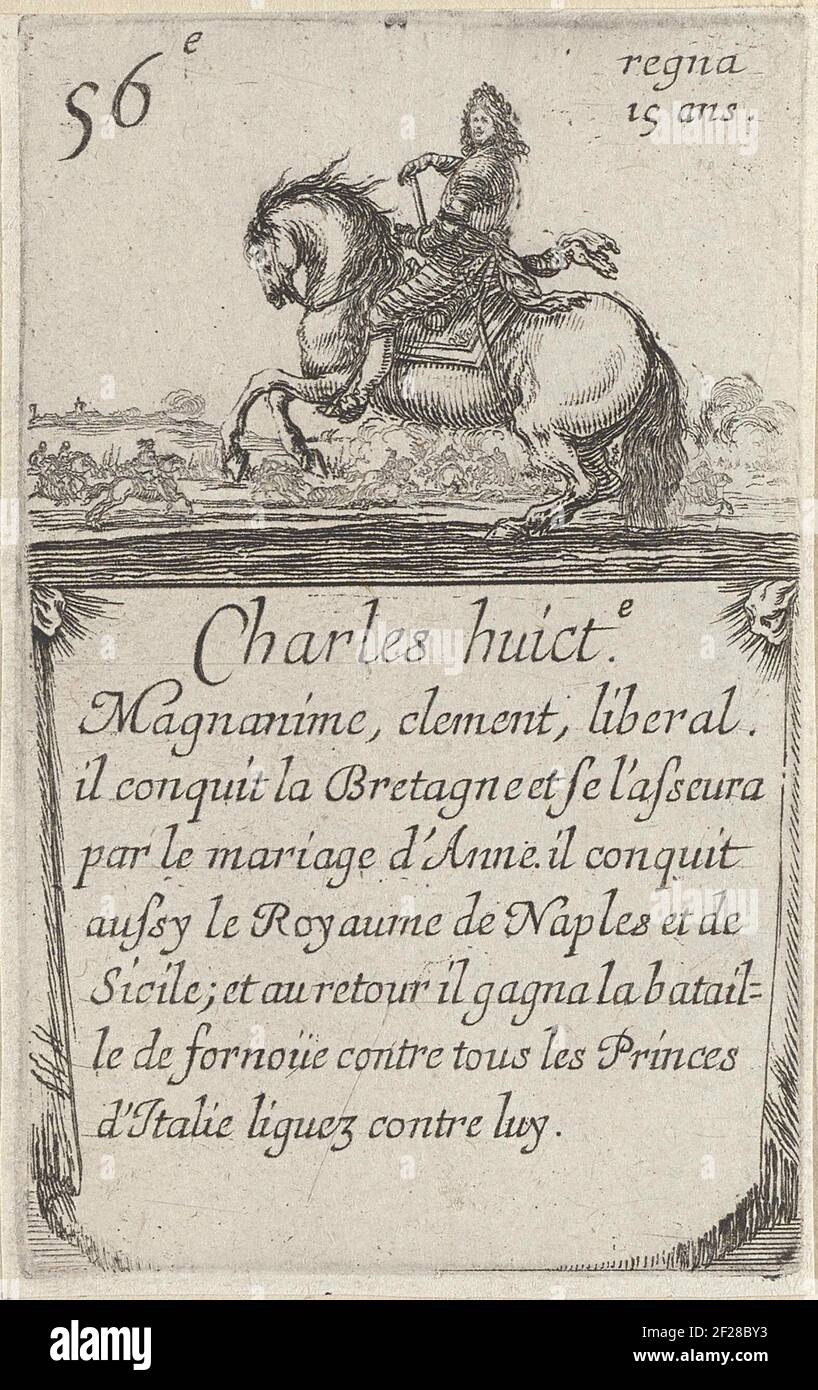 56e
regna
15 ans.
Charles huict.e
Magnanime, clement, liberal.
il conquit la Bretagne et se l'asseura
par le mariage d'Anne. il conquit
aussy le Royaume de Naples et de
Sicile; et au retour il gagna la batail=
le de fornoüe contre tous les Princes
d'Italie liguez contre luy.
alamy
Image ID: 2F28BY3
www.alamy.com